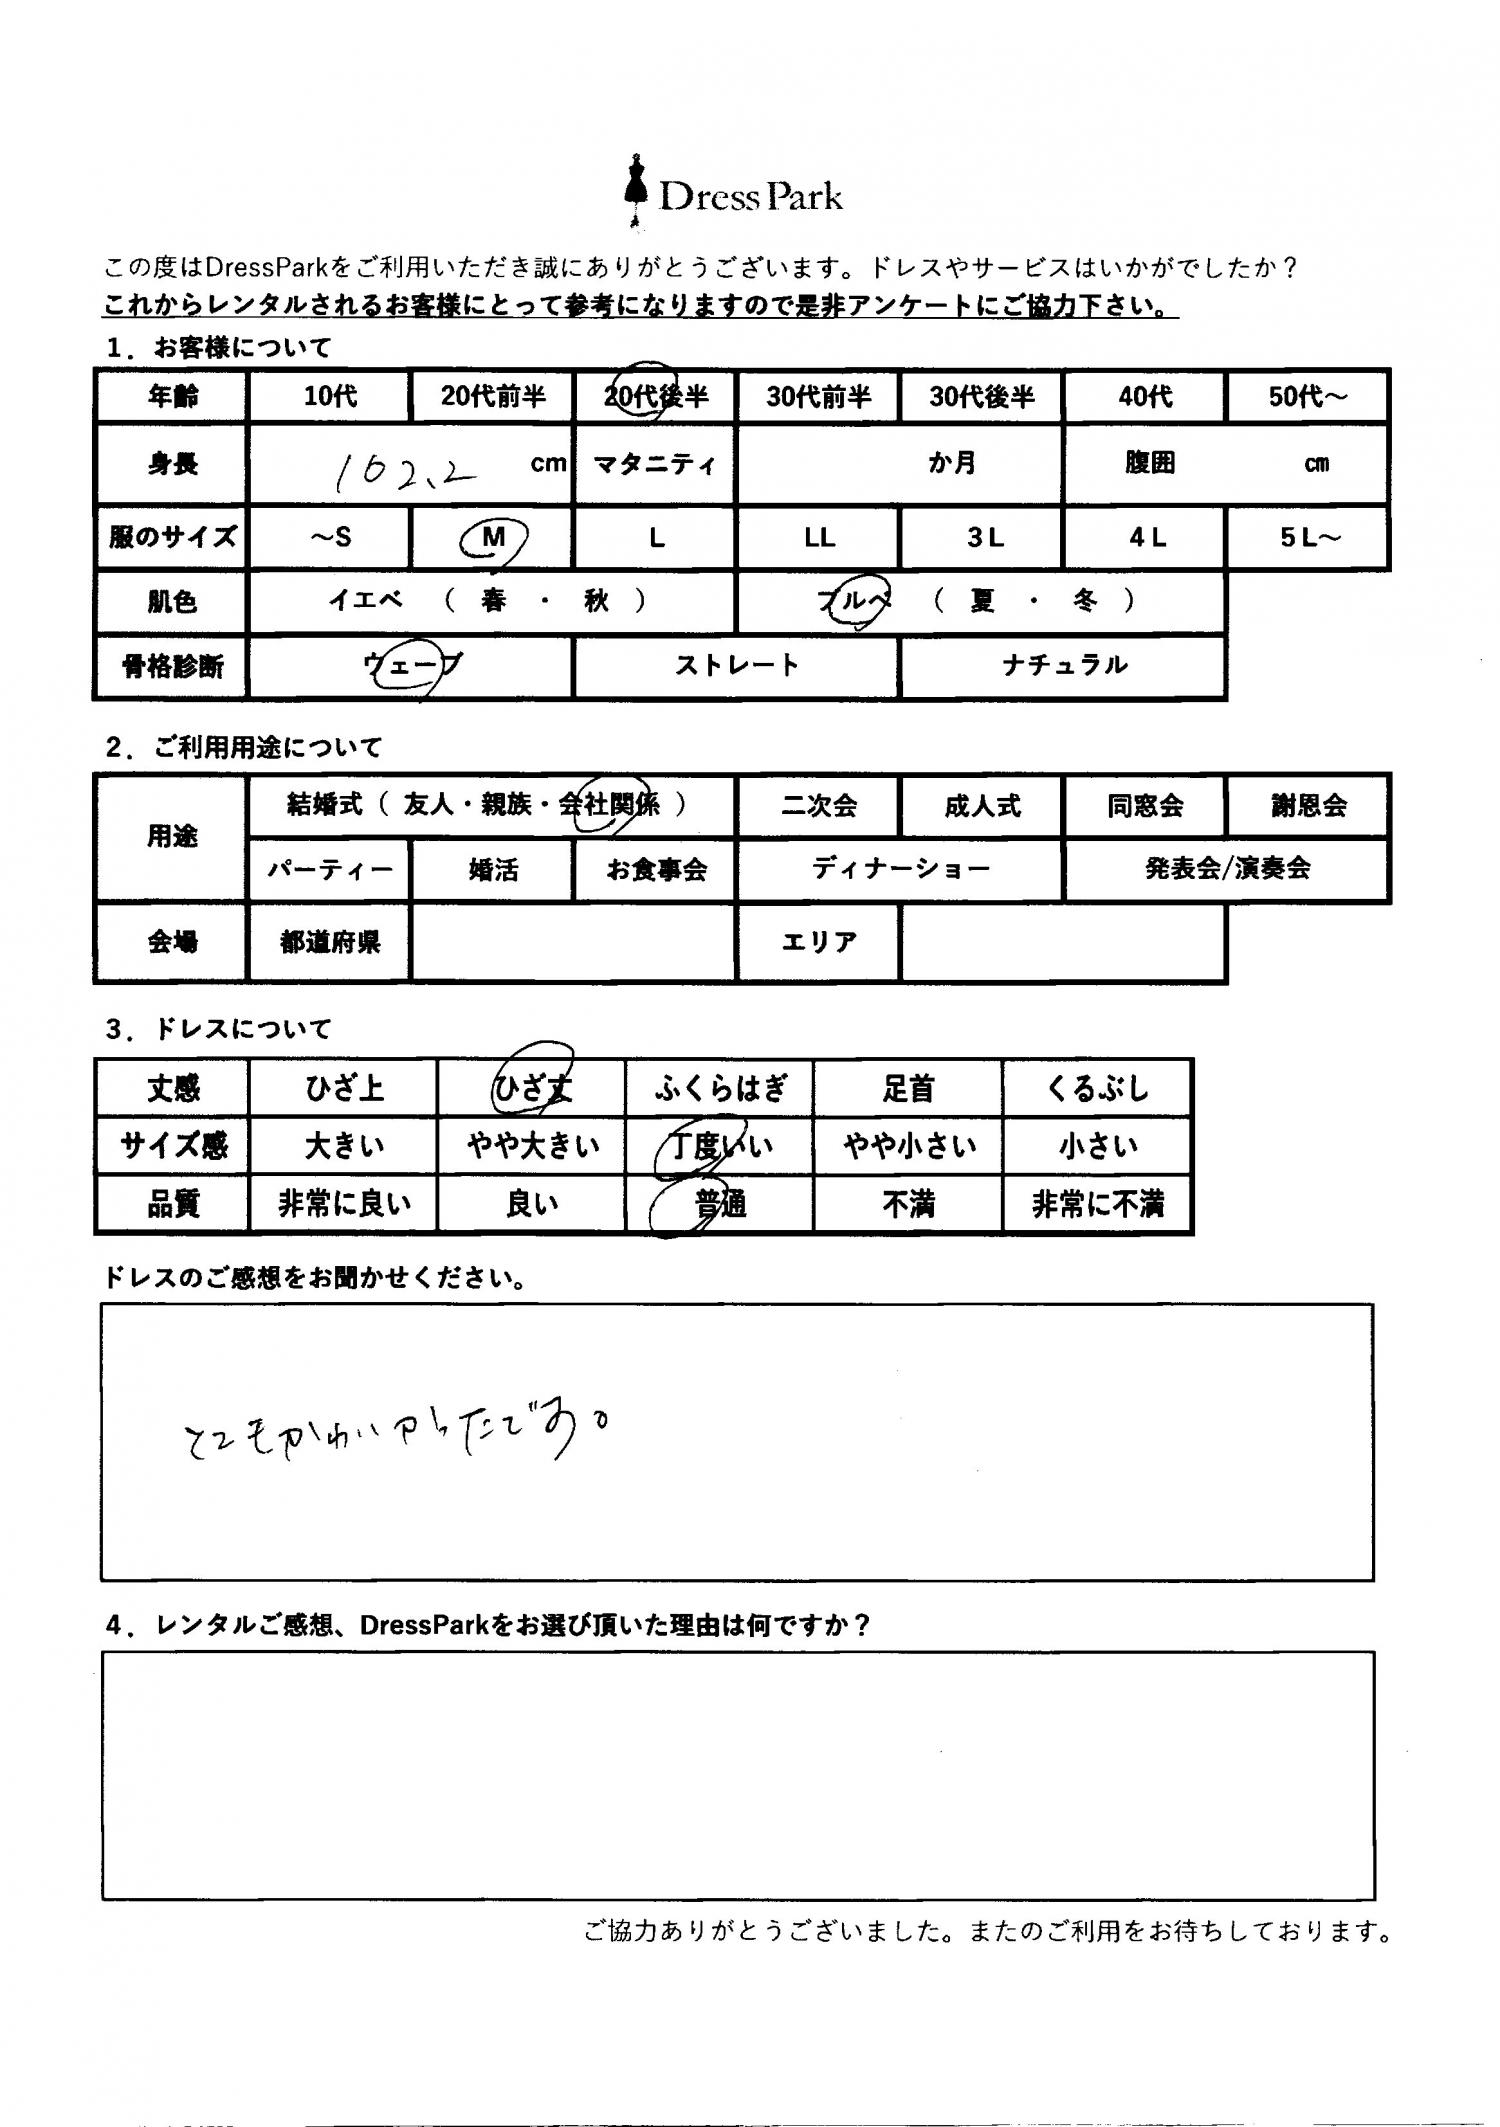 Dress Park
この度はDressParkをご利用いただき誠にありがとうございます。ドレスやサービスはいかがでしたか？
これからレンタルされるお客様にとって参考になりますので是非アンケートにご協力下さい。
1．お客様について
年齢 10代 20代前半 20代後半 30代前半 30代後半 40代 50代～
身長 162.2 cm マタニティ か月 腹囲 ㎝
服のサイズ ～S M L LL 3L 4L 5L～
肌色 イエベ （ 春 ・ 秋 ） ブルベ （ 夏 ・ 冬 ）
骨格診断 ウェーブ ストレート ナチュラル
2．ご利用用途について
用途 結婚式（ 友人・親族・会社関係 ） 二次会 成人式 同窓会 謝恩会
パーティー 婚活 お食事会 ディナーショー 発表会/演奏会
会場 都道府県 エリア
3．ドレスについて
丈感 ひざ上 ひざ丈 ふくらはぎ 足首 くるぶし
サイズ感 大きい やや大きい 丁度いい やや小さい 小さい
品質 非常に良い 良い 普通 不満 非常に不満
ドレスのご感想をお聞かせください。
とてもかわいかったです。
4．レンタルご感想、DressParkをお選び頂いた理由は何ですか？
ご協力ありがとうございました。またのご利用をお待ちしております。